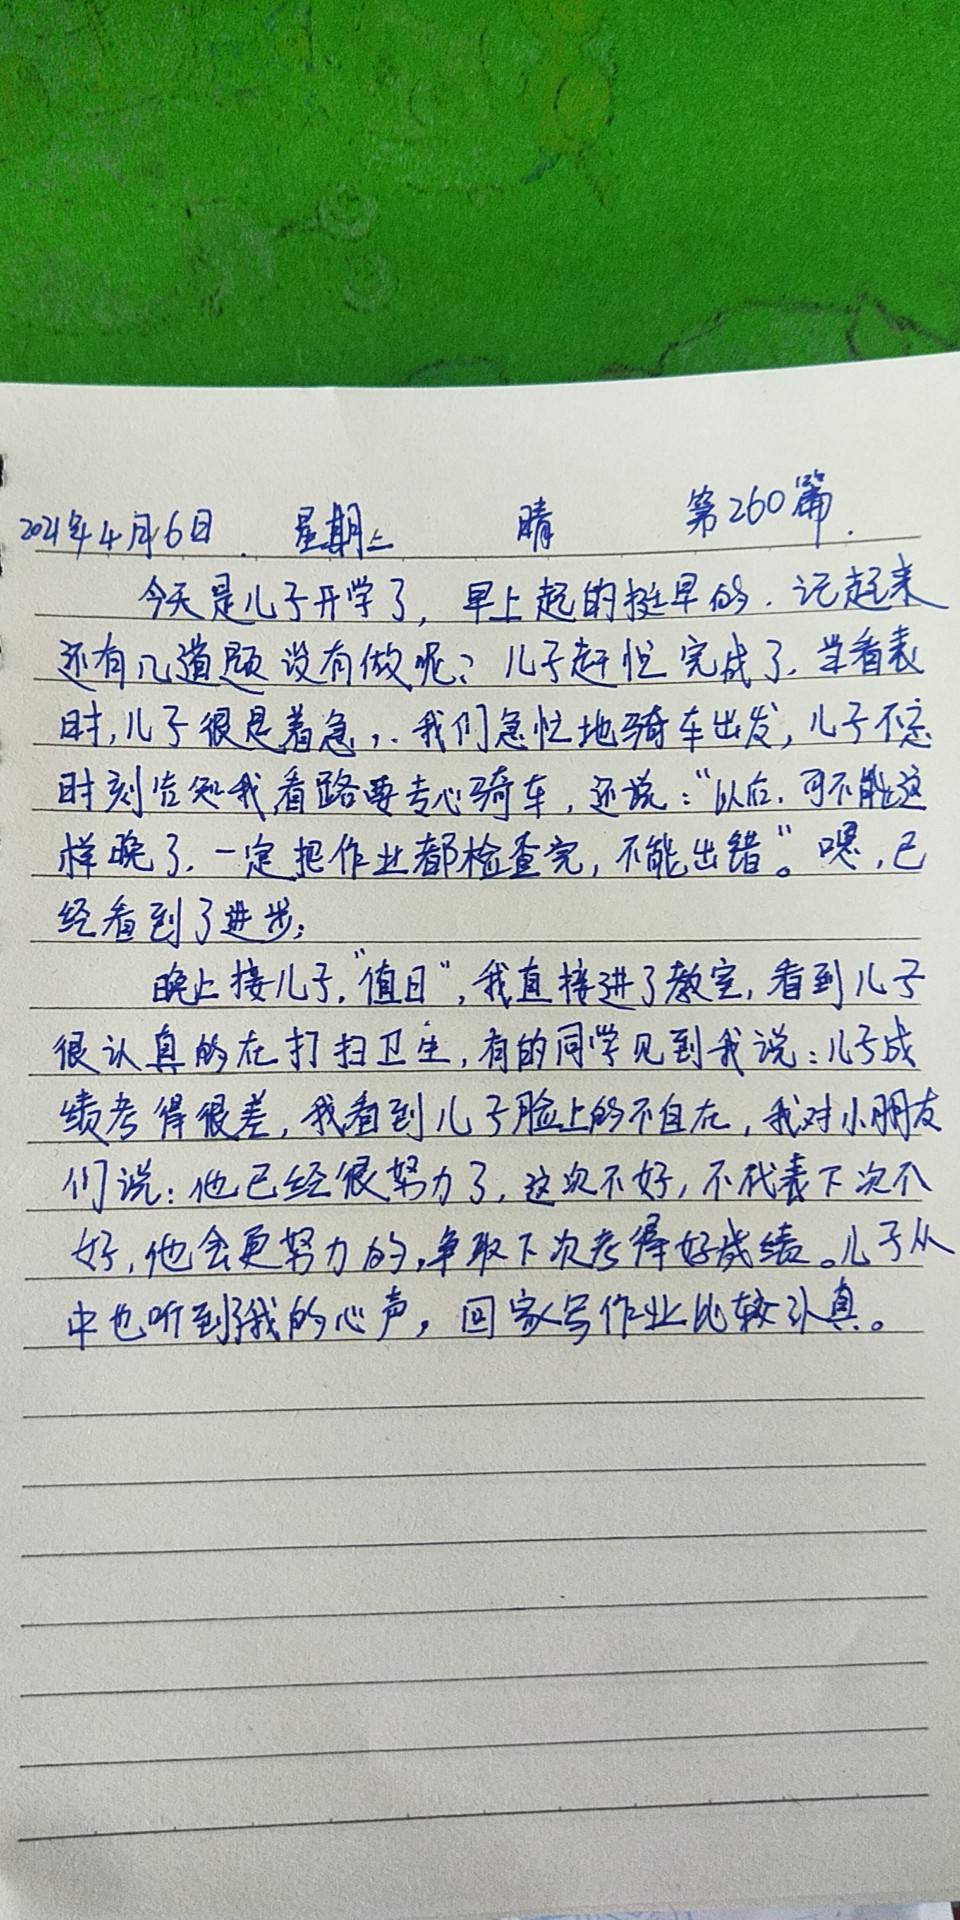 2021年4月6日 星期二 晴 第260篇.
今天是儿子开学了，早上起的挺早的.记起来
还有几道题没有做呢？儿子赶忙完成了.当看表
时,儿子很是着急,.我们急忙地骑车出发,儿子不忘
时刻告知我看路要专心骑车,还说:“以后.可不能这
样晚了.一定把作业都检查完,不能出错”。嗯,已
经看到了进步;
晚上接儿子,“值日”,我直接进了教室,看到儿子
很认真的在打扫卫生,有的同学见到我说:儿子成
绩考得很差,我看到儿子脸上的不自在,我对小朋友
们说:他已经很努力了,这次不好,不代表下次不
好,他会更努力的,争取下次考得好成绩。儿子从
中也听到了我的心声,回家写作业比较认真。